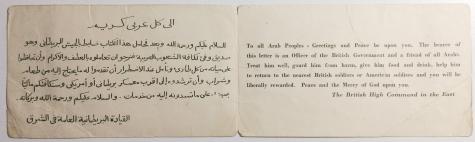 الى كل عربي كريم
السلام عليكم ورحمة الله وبعد فحامل هذا الكتاب ضابط بالجيش البريطاني وهو
صديق وفي لكافة الشعوب العربية فنرجو أن تعاملوه بالعطف والاكرام وأن تحافظوا
على حياته من كل طارئ ونأمل عند الاضطرار أن تقدموا له ما يحتاج اليه من طعام
وشراب وأن ترشدوه الى أقرب معسكر بريطاني أو أمريكي وسنكافئكم ماليا
بسخاء على ما تسدونه اليه من خدمات والسلام عليكم ورحمة الله وبركاته
القيادة البريطانية العامة في الشرق
To all Arab Peoples – Greetings and Peace be upon you. The bearer of
this letter is an Officer of the British Government and a friend of all Arabs.
Treat him well, guard him from harm, give him food and drink, help him
to return to the nearest British soldiers or American soldiers and you will be
liberally rewarded. Peace and the Mercy of God upon you.
The British High Command in the East